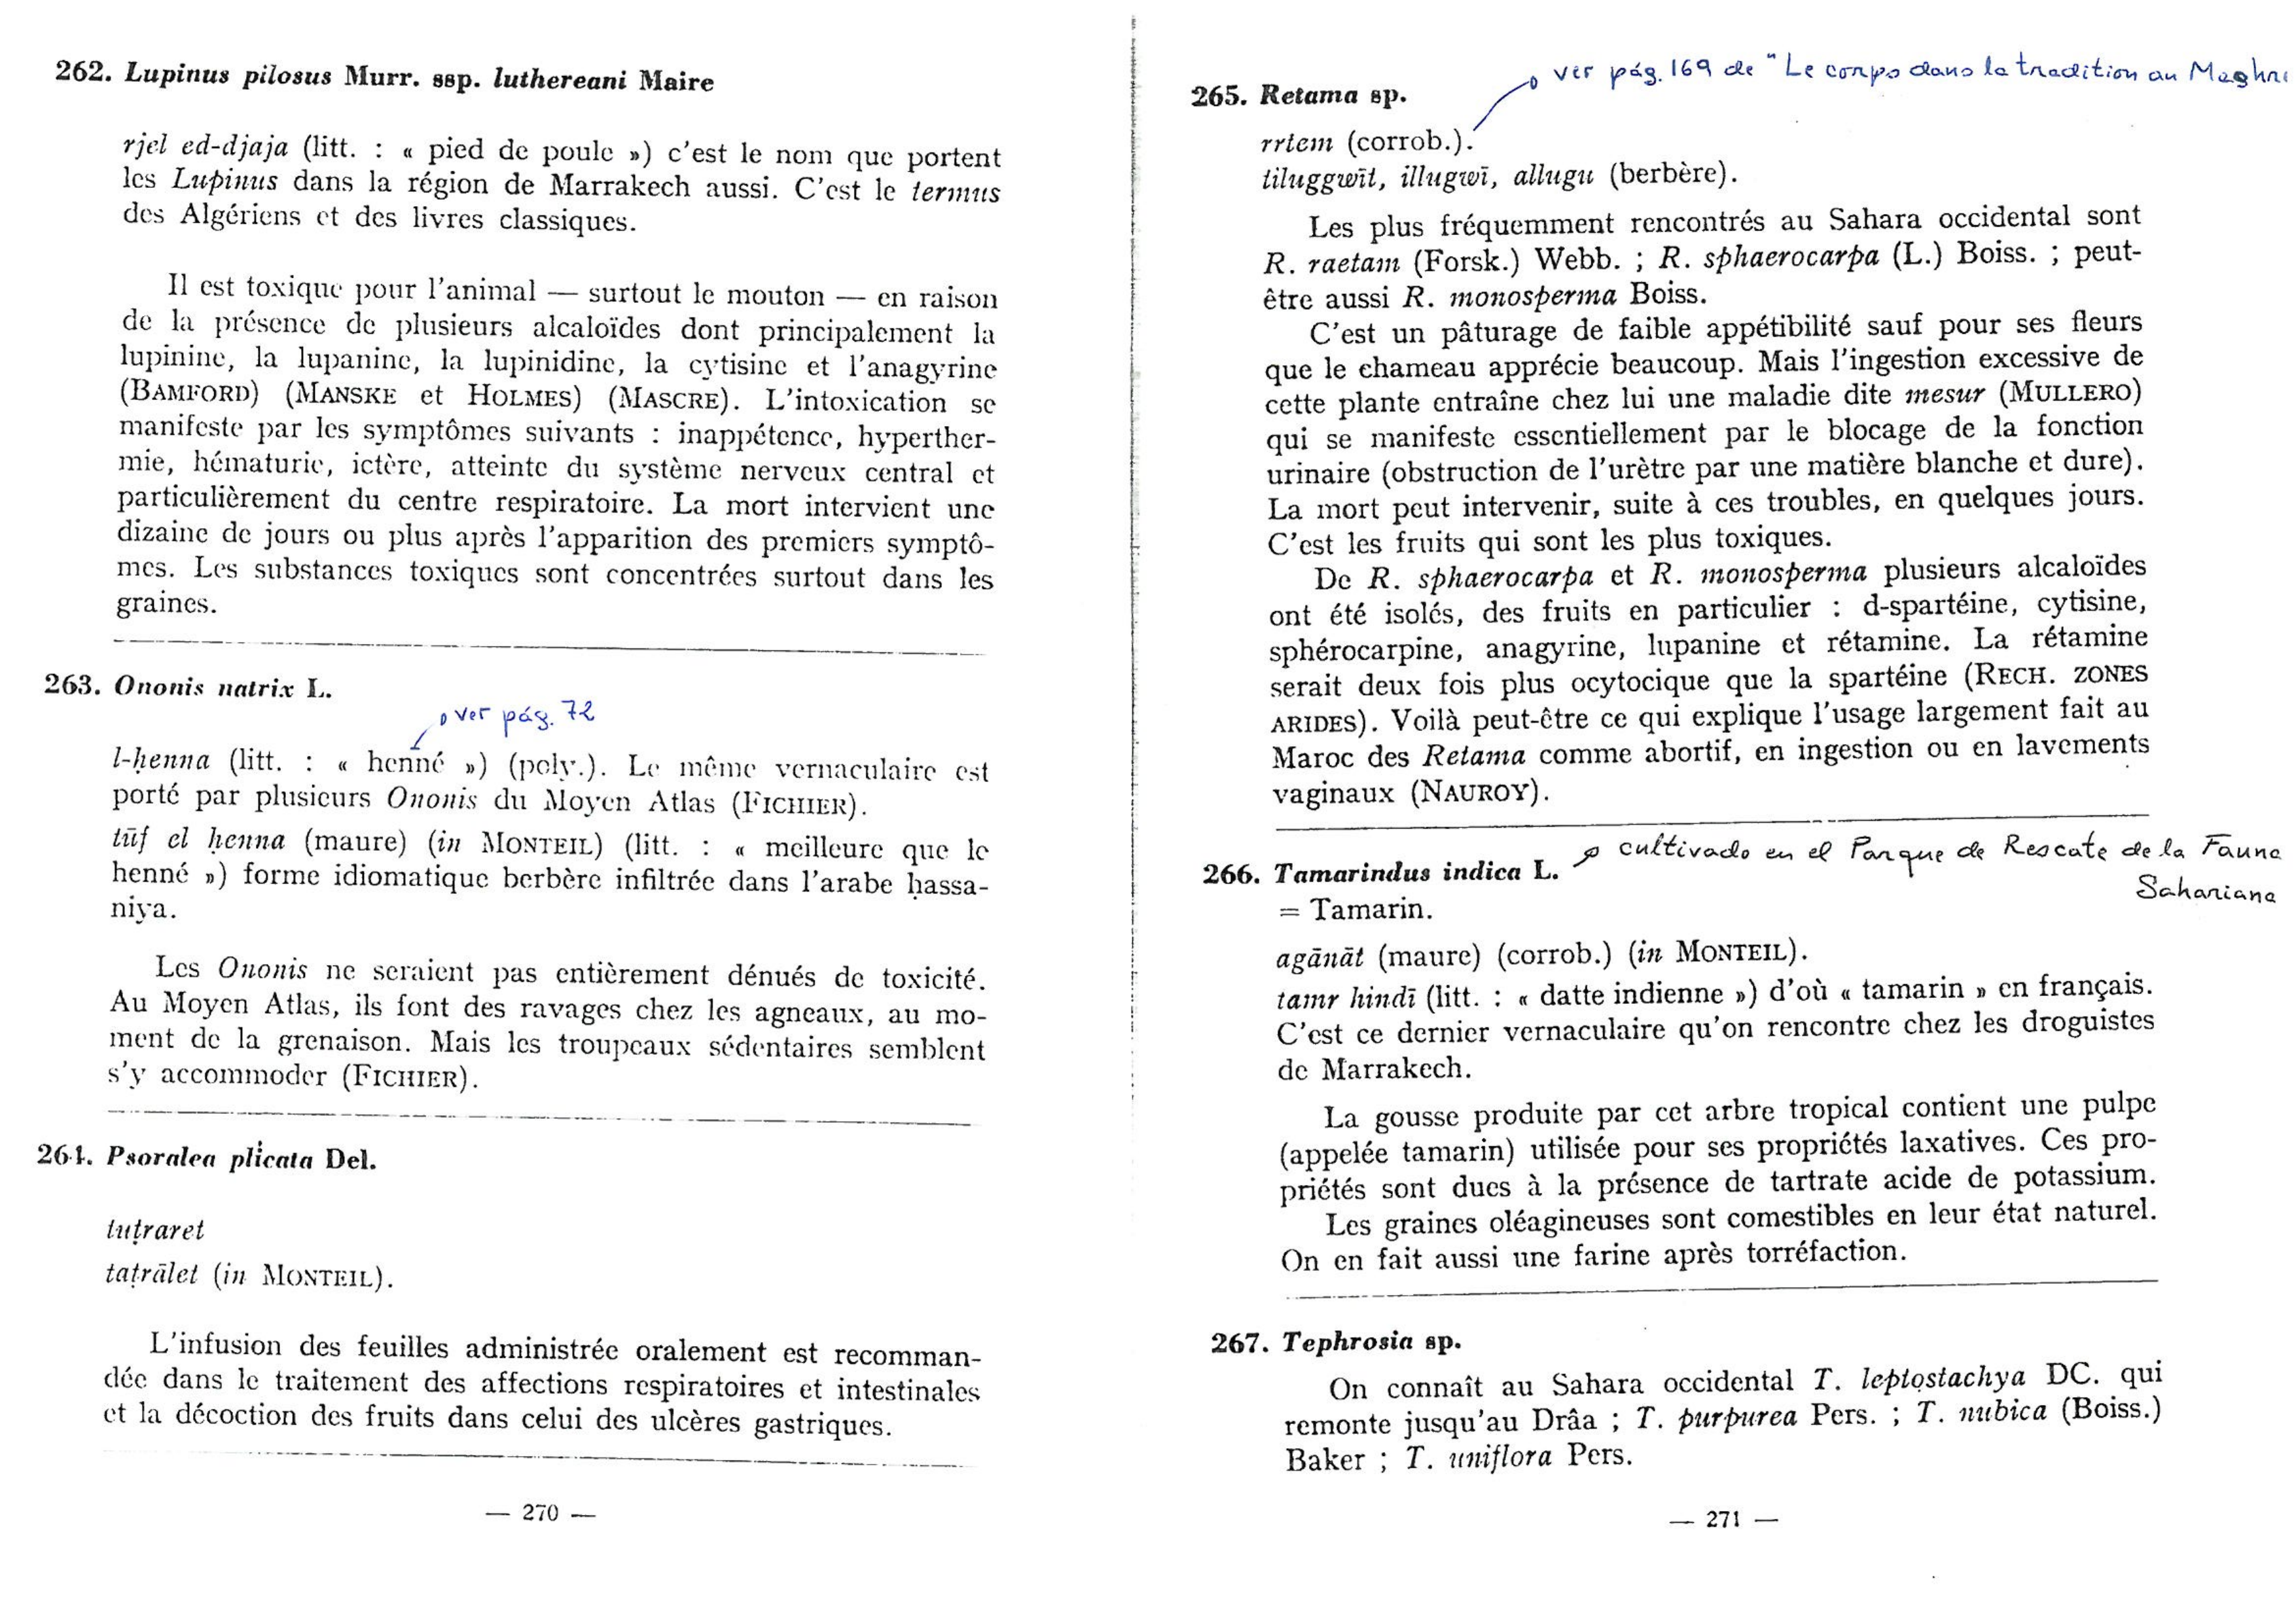 262. Lupinus pilosus Murr. ssp. luthereani Maire
rjel ed-djaja (litt. : « pied de poule ») c'est le nom que portent
les Lupinus dans la région de Marrakech aussi. C'est le termus
des Algériens et des livres classiques.
Il est toxique pour l'animal — surtout le mouton — en raison
de la présence de plusieurs alcaloïdes dont principalement la
lupinine, la lupanine, la lupinidine, la cytisine et l'anagyrine
(BAMFORD) (MANSKE et HOLMES) (MASCRE). L'intoxication se
manifeste par les symptômes suivants : inappétence, hyperther-
mie, hématurie, ictère, atteinte du système nerveux central et
particulièrement du centre respiratoire. La mort intervient une
dizaine de jours ou plus après l'apparition des premiers symptô-
mes. Les substances toxiques sont concentrées surtout dans les
graines.
263. Ononis natrix L.
ver pág. 72
l-ḥenna (litt. : « henné ») (poly.). Le même vernaculaire est
porté par plusieurs Ononis du Moyen Atlas (FICHIER).
tūf el ḥenna (maure) (in MONTEIL) (litt. : « meilleure que le
henné ») forme idiomatique berbère infiltrée dans l'arabe ḥassa-
niya.
Les Ononis ne seraient pas entièrement dénués de toxicité.
Au Moyen Atlas, ils font des ravages chez les agneaux, au mo-
ment de la grenaison. Mais les troupeaux sédentaires semblent
s'y accommoder (FICHIER).
264. Psoralea plicata Del.
tuṭraret
taṭrālet (in MONTEIL).
L'infusion des feuilles administrée oralement est recomman-
dée dans le traitement des affections respiratoires et intestinales
et la décoction des fruits dans celui des ulcères gastriques.
— 270 —
ver pág. 169 de "Le corps dans la tradition au Maghre
265. Retama sp.
rrtem (corrob.).
tiluggwīt, illugwī, allugu (berbère).
Les plus fréquemment rencontrés au Sahara occidental sont
R. raetam (Forsk.) Webb. ; R. sphaerocarpa (L.) Boiss. ; peut-
être aussi R. monosperma Boiss.
C'est un pâturage de faible appétibilité sauf pour ses fleurs
que le chameau apprécie beaucoup. Mais l'ingestion excessive de
cette plante entraîne chez lui une maladie dite mesur (MULLERO)
qui se manifeste essentiellement par le blocage de la fonction
urinaire (obstruction de l'urètre par une matière blanche et dure).
La mort peut intervenir, suite à ces troubles, en quelques jours.
C'est les fruits qui sont les plus toxiques.
De R. sphaerocarpa et R. monosperma plusieurs alcaloïdes
ont été isolés, des fruits en particulier : d-spartéine, cytisine,
sphérocarpine, anagyrine, lupanine et rétamine. La rétamine
serait deux fois plus ocytocique que la spartéine (RECH. ZONES
ARIDES). Voilà peut-être ce qui explique l'usage largement fait au
Maroc des Retama comme abortif, en ingestion ou en lavements
vaginaux (NAUROY).
cultivado en el Parque de Rescate de la Fauna
Sahariana
266. Tamarindus indica L.
= Tamarin.
agānāt (maure) (corrob.) (in MONTEIL).
tamr hindī (litt. : « datte indienne ») d'où « tamarin » en français.
C'est ce dernier vernaculaire qu'on rencontre chez les droguistes
de Marrakech.
La gousse produite par cet arbre tropical contient une pulpe
(appelée tamarin) utilisée pour ses propriétés laxatives. Ces pro-
priétés sont dues à la présence de tartrate acide de potassium.
Les graines oléagineuses sont comestibles en leur état naturel.
On en fait aussi une farine après torréfaction.
267. Tephrosia sp.
On connaît au Sahara occidental T. leptostachya DC. qui
remonte jusqu'au Drâa ; T. purpurea Pers. ; T. nubica (Boiss.)
Baker ; T. uniflora Pers.
— 271 —